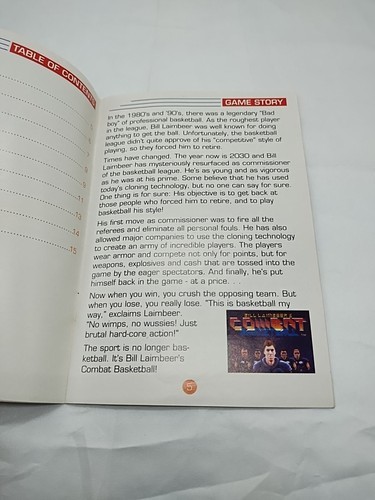 TABLE OF CONTENTS
11
13
14
15
GAME STORY
In the 1980's and '90's, there was a legendary "Bad
boy" of professional basketball. As the roughest player
in the league, Bill Laimbeer was well known for doing
anything to get the ball. Unfortunately, the basketball
league didn't quite approve of his "competitive" style of
playing, so they forced him to retire.
Times have changed. The year now is 2030 and Bill
Laimbeer has mysteriously resurfaced as commissioner
of the basketball league. He's as young and as vigorous
as he was at his prime. Some believe that he has used
today's cloning technology, but no one can say for sure.
One thing is for sure: His objective is to get back at
those people who forced him to retire, and to play
basketball his style!
His first move as commissioner was to fire all the
referees and eliminate all personal fouls. He has also
allowed major companies to use the cloning technology
to create an army of incredible players. The players
wear armor and compete not only for points, but for
weapons, explosives and cash that are tossed into the
game by the eager spectators. And finally, he's put
himself back in the game - at a price. . .
Now when you win, you crush the opposing team. But
when you lose, you really lose. "This is basketball my
way," exclaims Laimbeer.
"No wimps, no wussies! Just
brutal hard-core action!"
The sport is no longer bas-
ketball. It's Bill Laimbeer's
Combat Basketball!
BILL LAIMBEER'S
COMBAT
5